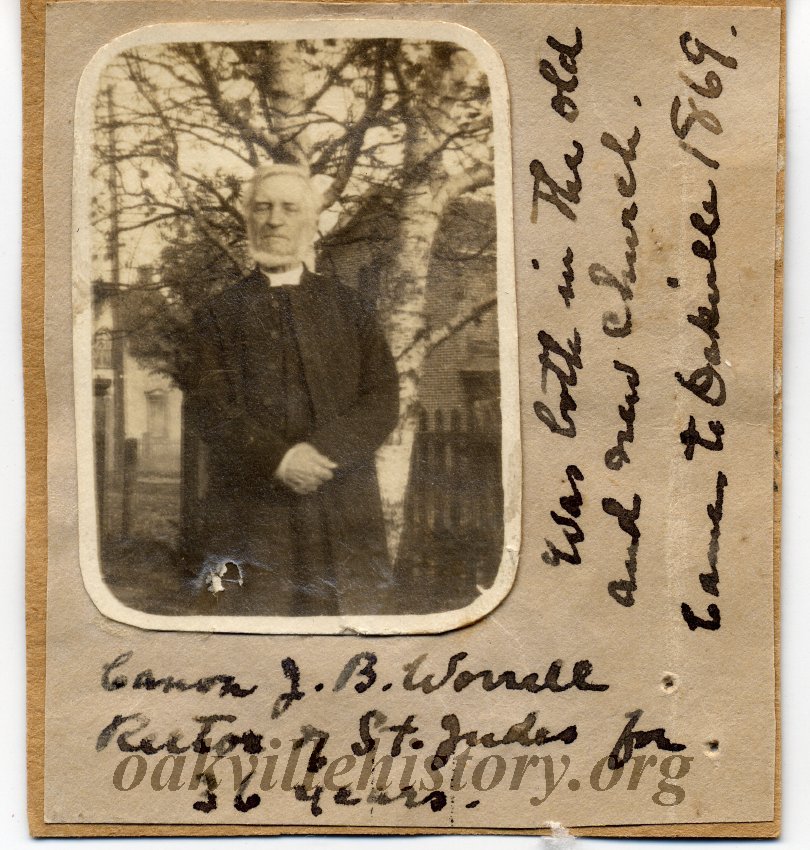 Canon J. B. Worrell
Rector of St. Judes for
36 years.
Was both in the old
and new church.
Came to Oakville 1869.
oakvillehistory.org